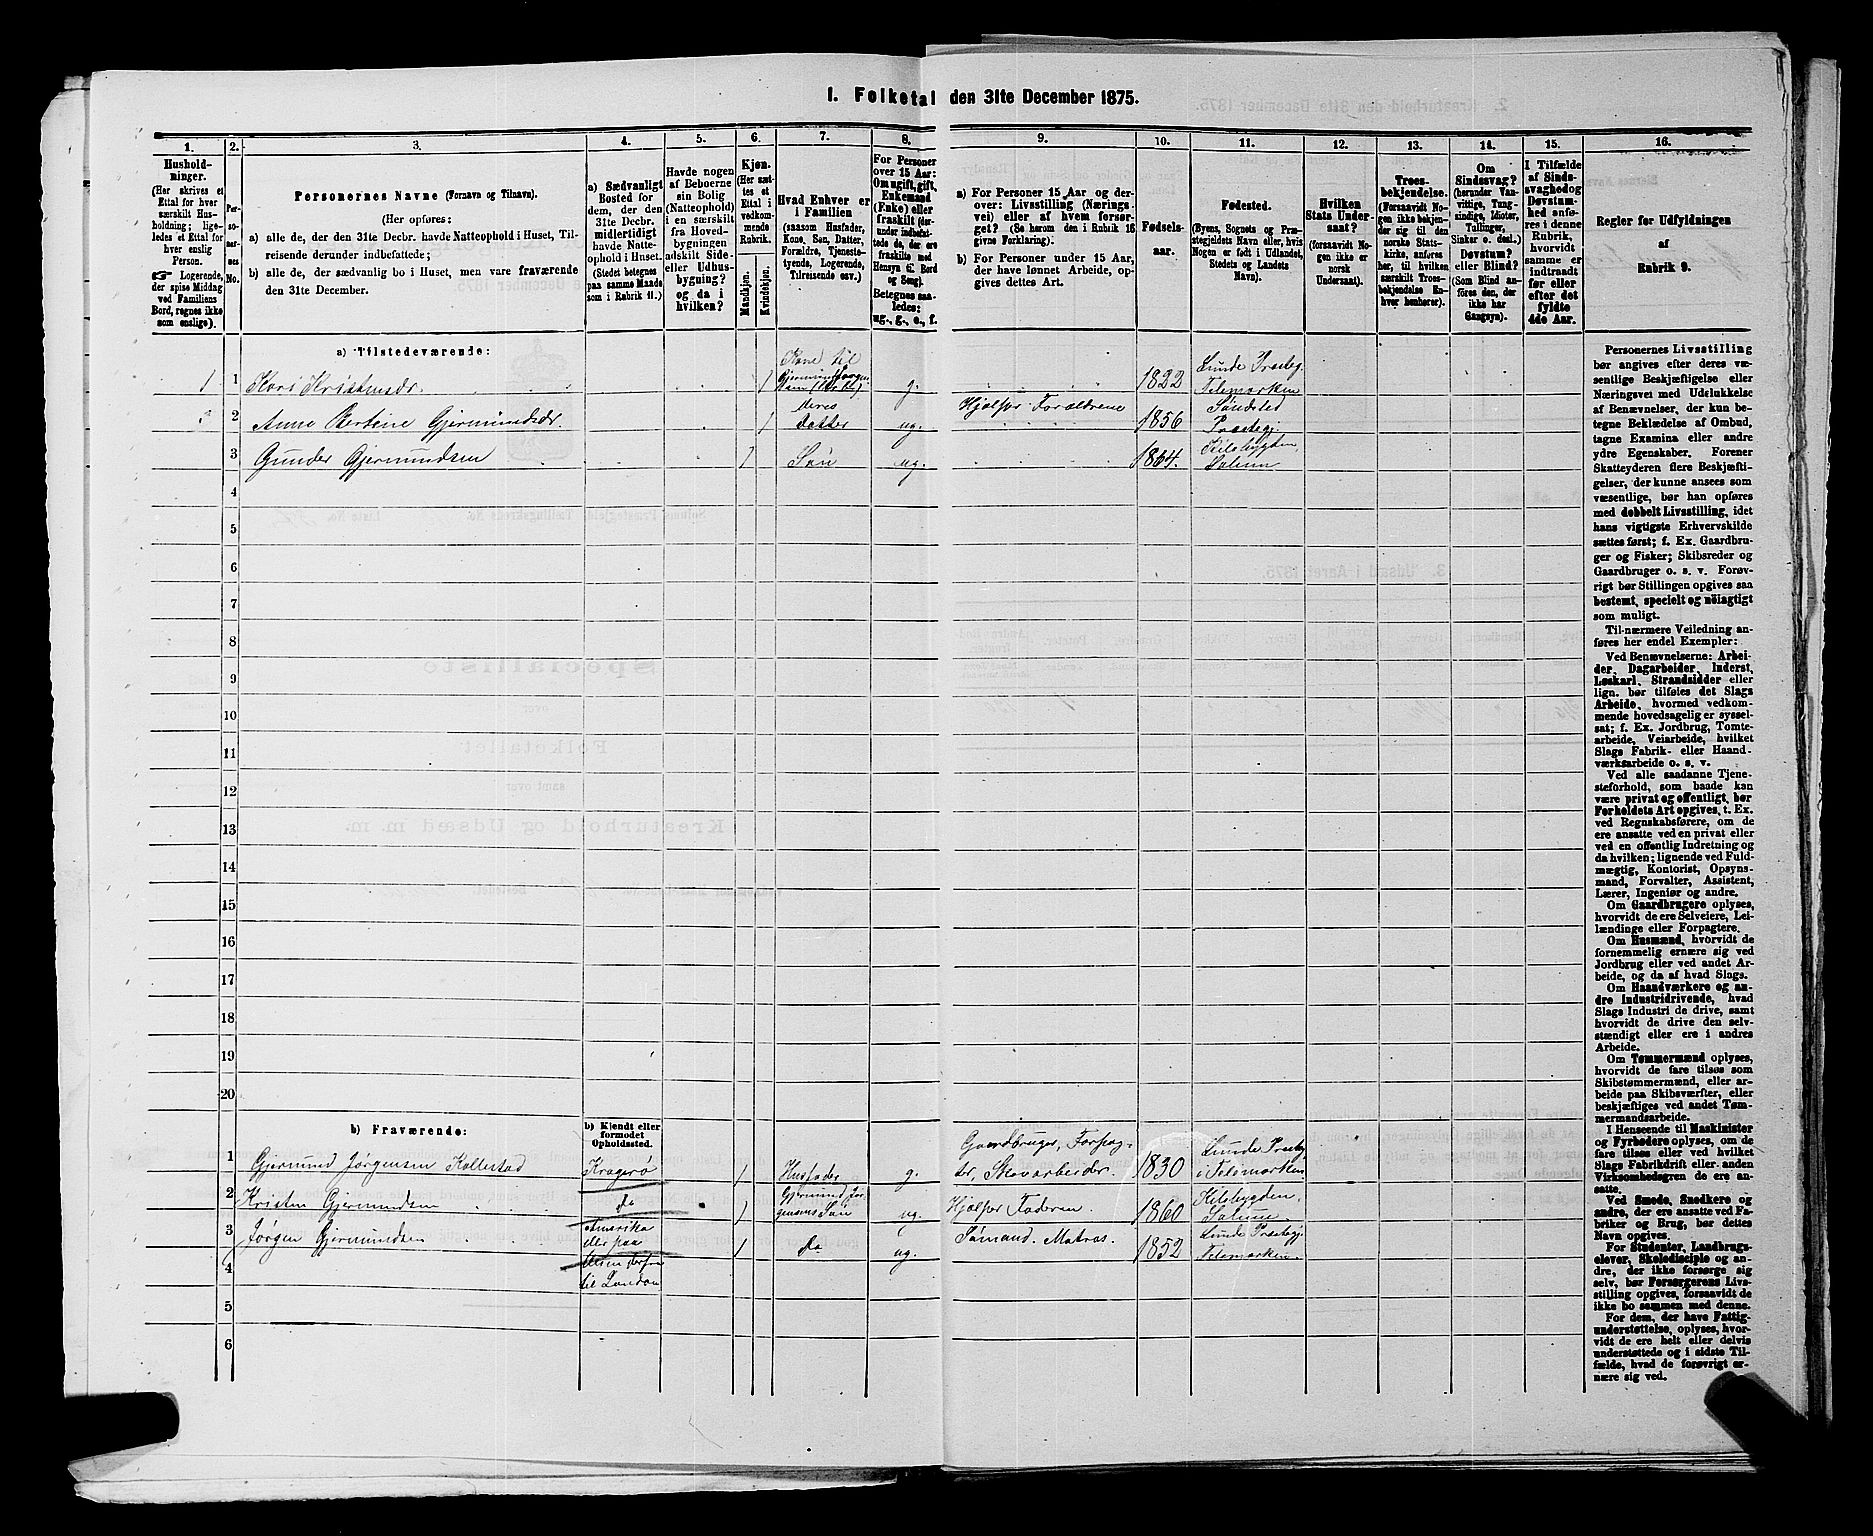 1. Folketal den 31te December 1875.
1.
Hushold-
ninger.
(Her skrives et
Ettal for hver
særskilt Hus-
holdning; lige-
ledes et Ettal for
hver enslig
Person.
Logerende,
der spise Middag
ved Familiens
Bord, regnes ikke
som enslige).
2.
Per-
so-
ner-
nes
No.
3.
Personernes Navne (Fornavn og Tilnavn).
(Her opføres:
a) alle de, der den 31te Decbr. havde Natteophold i Huset, Til-
reisende derunder indbefattede;
b) alle de, der sædvanlig bo i Huset, men vare fraværende
den 31te December.
4.
a) Sædvanligt
Bosted for
dem, der den
31te Decbr.
midlertidigt
havde Natte-
ophold i Huset.
(Stedet betegnes
paa samme Maade
som i Rubrik 11.)
5.
Havde nogen
af Beboerne
sin Bolig
(Natteophold)
i en særskilt
fra Hoved-
bygningen
adskilt Side-
eller Udhus-
bygning?
og da i
hvilken?
6.
Kjøn.
(Her sæt-
tes et
Ettal i
vedkom-
mende
Rubrik.)
Mandkjøn.
Kvindekjøn.
7.
Hvad Enhver er
i Familien
(saasom Husfader,
Kone, Søn, Datter,
Forældre, Tjeneste-
tyende, Logerende,
Tilreisende osv.)
8.
For Personer
over 15 Aar:
Om ugift, gift,
Enkemand
(Enke) eller
fraskilt (der-
under indbefat-
tede de, der ere
fraskilte med
Hensyn til Bord
og Seng).
Betegnes saa-
ledes:
ug., g., e., f.
9.
a) For Personer 15 Aar og der-
over: Livsstilling (Nærings-
vei) eller af hvem forsør-
get? (Se herom den i Rubrik 16
givne Forklaring).
b) For Personer under 15 Aar,
der have lønnet Arbeide, op-
gives dettes Art.
10.
Fødsels-
aar.
11.
Fødested.
(Byens, Sognets og Præ-
stegjeldets Navn eller, hvis
Nogen er født i Udlandet,
Stedets og Landets
Navn).
12.
Hvilken
Stats Under-
saat?
(forsaavidt No-
gen ikke er
norsk
Undersaat).
13.
Troes-
bekjendelse.
(Forsaavidt No-
gen ikke bekjen-
der sig til den
norske Stats-
kirke, anføres
her, til hvilken
særskilt Troes-
bekjendelse En-
hver henhører).
14.
Om
Sindssvag?
(herunder Van-
vittige, Tung-
sindige, Idioter,
Tullinger,
Sinker o. desl.)
Døvstum?
eller Blind?
(Som Blind an-
føres den, der
ikke har
Gangsyn).
15.
I Tilfælde
af Sinds-
svaghed og
Døvstum-
hed anfø-
res i denne
Rubrik,
hvorvidt
samme er
indtraadt
før eller
efter det
fyldte
4de Aar.
16.
Regler for Udfyldningen
af
Rubrik 9.
a) Tilstedeværende:
1 1 Kari Kristensdr. 1 Kone til Gjermund Jørgen- g. 1822 Lunde Præsteg. Telemarken
2 Anne Bertine Gjermundsdr. 1 deres datter ug. Hjælper Forældrene 1856 Præstegj.
3 Gunder Gjermundsen 1 Søn ug. 1864. Kilebygden, Solum
4
5
6
7
8
9
10
11
12
13
14
15
16
17
18
19
20
b) Fraværende:
b) Kjendt eller
formodet
Opholdssted.
1 Gjermund Jørgensen Kollestad Kragerø 1 Husfader g. Gaardbruger, Forpag- ter, Skovarbeider. 1830 Lunde Præstegj i Telemarken
2 Kristen Gjermundsen do 1 Gjermund Jør- gensens Søn ug. Hjælper Faderen. 1860 Kilebygden, Solum.
3 Jørgen Gjermundsen Amerika eller paa Reise derfra til London 1 do ug. Sømand. Matros. 1852 Lunde Præstegj. Telemarken.
4
5
6
Personernes Livsstilling
bør angives efter deres væ-
sentlige Beskjæftigelse eller
Næringsvei med Udelukkelse
af Benævnelser, der kun be-
tegne Beklædelse af Ombud,
tagne Examina eller andre
ydre Egenskaber. Forener
Skatteyderen flere Beskjæfti-
gelser, der kunne ansees som
væsentlige, bør han opføres
med dobbelt Livsstilling, idet
hans vigtigste Erhvervskilde
sættes først; f. Ex. Gaardbru-
ger og Fisker; Skibsreder og
Gaardbruger o. s. v. Forøv-
rigt bør Stillingen opgives saa
bestemt, specielt og nøiagtigt
som muligt.
Til nærmere Veiledning an-
føres her endel Exempler:
Ved Benævnelserne: Arbei-
der, Dagarbeider, Inderst,
Løskarl, Strandsidder eller
lign. bør tilføies det Slags
Arbeide, hvormed vedkom-
mende hovedsagelig er syssel-
sat; f. Ex. Jordbrug, Tomte-
arbeide, Veiarbeide, hvilket
Slags Fabrik- eller Haand-
værksarbeide o. s. v.
Ved alle saadanne Tjene-
steforhold, som baade kan
være privat og offentligt, bør
Forholdets Art opgives, t. Ex.
ved Regnskabsførere, om de
ere ansatte ved en privat eller
ved en offentlig Indretning og
da hvilken; lignende ved Fuld-
mægtig, Kontorist, Opsyns-
mand, Forvalter, Assistent,
Lærer, Ingeniør og andre.
Om Gaardbrugere oplyses,
hvorvidt de ere Selveiere, Lei-
lændinge eller Forpagtere.
Om Husmænd, hvorvidt de
fornemmelig ernære sig ved
Jordbrug eller ved andet Ar-
beide, og da af hvad Slags.
Om Haandværkere og an-
dre Industridrivende, hvad
Slags Industri de drive, samt
hvorvidt de drive den selv-
stændigt eller ere i andres
Arbeide.
Om Tømmermænd oplyses,
hvorvidt de fare tilsøs som
Skibstømmermænd, eller ar-
beide paa Skibsværfter, eller
beskjæftiges ved andet Tøm-
mermandsarbeide.
I Henseende til Maskinister
og Fyrbødere oplyses, om de
fare tilsøs eller ved hvilket
Slags Fabrikdrift eller anden
Virksomhedsgren de ere an-
satte.
Ved Smede, Snedkere og
andre, der ere ansatte ved Fa-
briker og Brug, bør dettes
Navn opgives.
For Studenter, Landbrugs-
elever, Skoledisciple og an-
dre, der ikke forsørge sig
selv, bør Forsørgerens Livs-
stilling opgives, forsaavidt de
ikke bo sammen med denne.
For dem, der have Fattig-
understøttelse, oplyses, hvor-
vidt de ere helt eller delvis
understøttede og i sidste Til-
fælde, hvad de forøvrigt er-
nære sig ved.